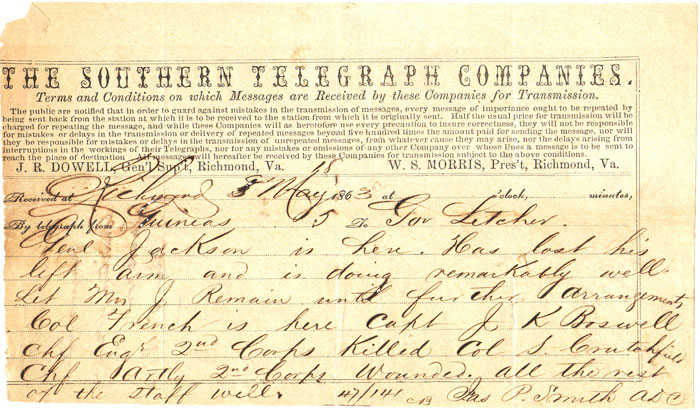 THE SOUTHERN TELEGRAPH COMPANIES.
Terms and Conditions on which Messages are Received by these Companies for Transmission.
The public are notified that in order to guard against mistakes in the transmission of messages, every message of importance ought to be repeated by
being sent back from the station at which it is to be received to the station from which it is originally sent. Half the usual price for transmission will be
charged for repeating the message, and while these Companies will as heretofore use every precaution to insure correctness, they will not be responsible
for mistakes or delays in the transmission or delivery of repeated messages beyond five hundred times the amount paid for sending the message, nor will
they be responsible for mistakes or delays in the transmission of unrepeated messages, from whatever cause they may arise, nor for delays arising from
interruptions in the workings of their Telegraphs, nor for any mistakes or omissions of any other Company over whose lines a message is to be sent to
reach the place of destination. All messages will hereafter be received by these Companies for transmission subject to the above conditions.
J. R. DOWELL, Gen'l Sup't, Richmond, Va. W. S. MORRIS, Pres't, Richmond, Va.
Received at Richmond 5 May 1863 at o'clock, minutes,
By telegraph from Guineas 5 To Gov Letcher.
Genl Jackson is here. Has lost his
left arm and is doing remarkably well
Let Mrs J Remain until further arrangement
Col French is here Capt J K Boswell
Chf Engr 2nd Corps Killed Col S Crutchfield
Chf Artly 2nd Corps Wounded. all the rest
of the staff well. 47/141 Jas P. Smith ADC